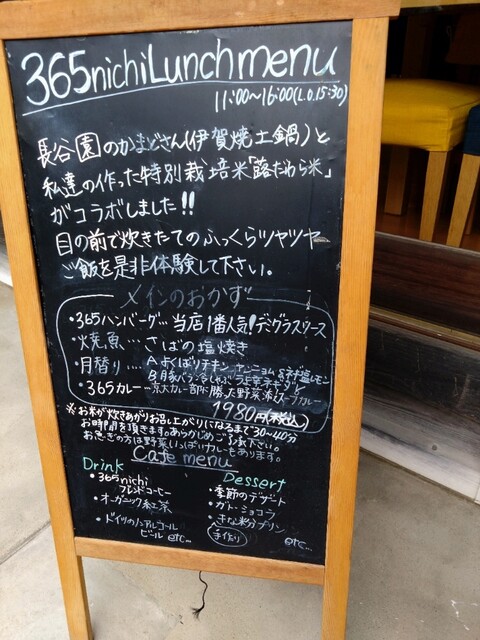 365nichi Lunch menu
11:00～16:00(L.O.15:30)
長谷園のかまどさん(伊賀焼土鍋)と
私達の作った特別栽培米「蕗だわら米」
がコラボしました!!
目の前で炊きたてのふっくらツヤツヤ
ご飯を是非体験して下さい。
メインのおかず
・365ハンバーグ…当店1番人気!デミグラスソース
・焼魚…さばの塩焼き
・月替り… A よくばりチキン ヤンニョム&ネギ塩レモン
B 豚バラ冷しゃぶ
・365カレー…京大カレー部が勝った野菜添えスープカレー
1980円(税込)
※お米が炊きあがりお召し上がりになるまで30～40分
お時間を頂きます。あらかじめご了承下さい。
お急ぎの方は野菜いっぱいカレーもあります。
Cafe menu
Drink
・365nichi
ブレンドコーヒー
・オーガニック紅茶
・ドイツのノンアルコール
ビール etc...
Dessert
・季節のデザート
・ガトーショコラ
・きな粉プリン
手作り
etc...